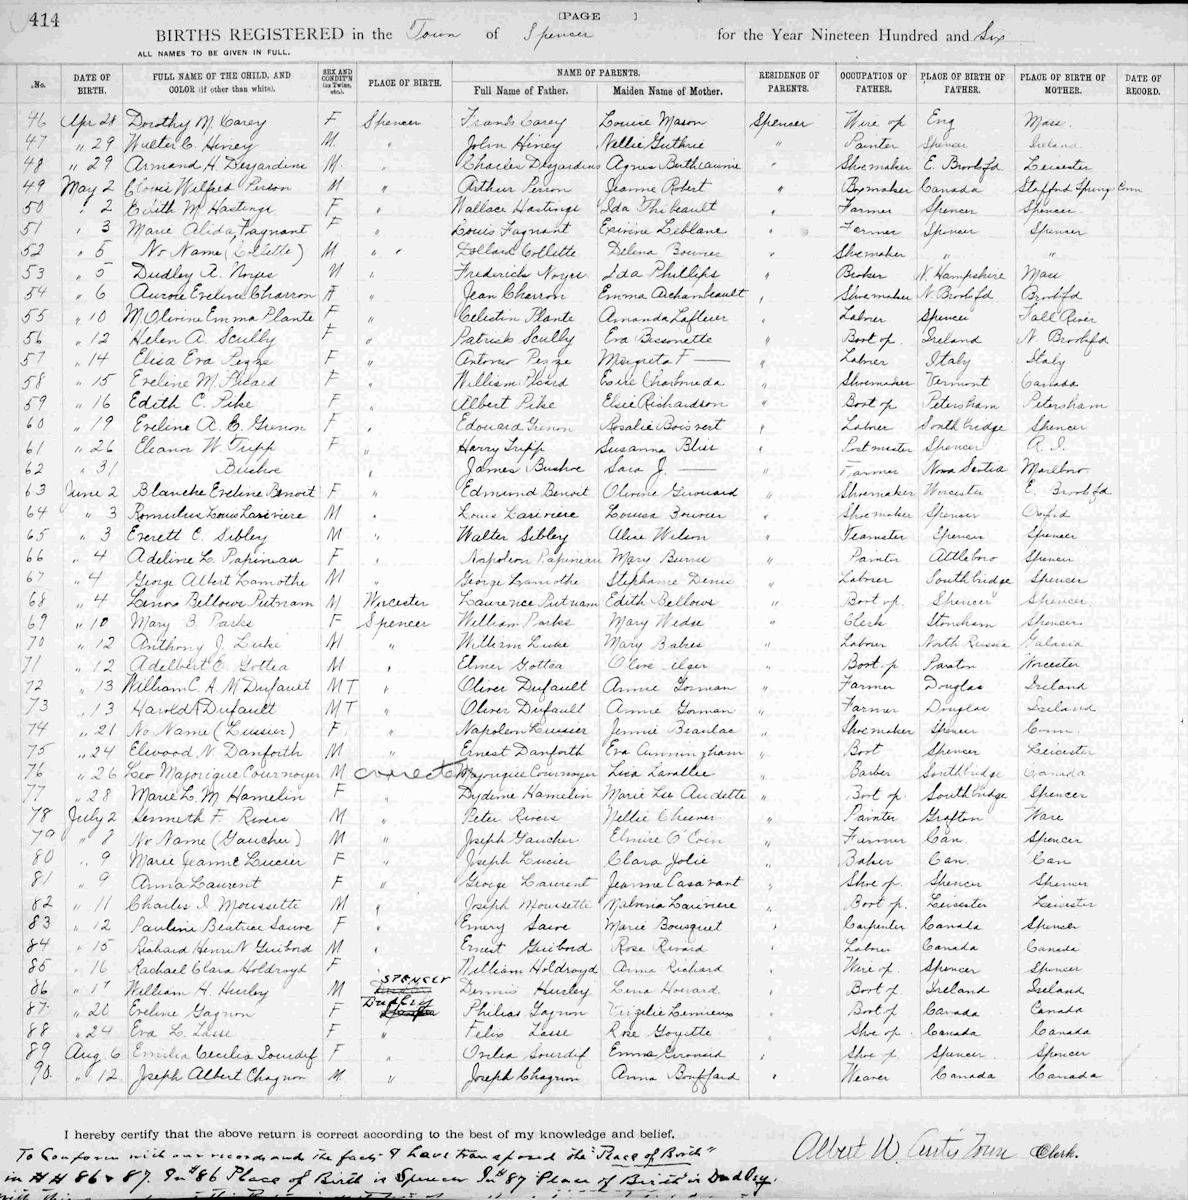 414
[PAGE ]
BIRTHS REGISTERED in the Town of Spencer for the Year Nineteen Hundred and Six
ALL NAMES TO BE GIVEN IN FULL.
No. DATE OF BIRTH. FULL NAME OF THE CHILD, AND COLOR (if other than white). SEX AND CONDIT'N (as Twins, etc.). PLACE OF BIRTH. NAME OF PARENTS. Full Name of Father. Maiden Name of Mother. RESIDENCE OF PARENTS. OCCUPATION OF FATHER. PLACE OF BIRTH OF FATHER. PLACE OF BIRTH OF MOTHER. DATE OF RECORD.
46 Apr 28 Dorothy M. Carey F Spencer Frank Carey Louise Mason Spencer Wire op Eng Mass.
47 " 29 Walter C. Hiney M " John Hiney Nellie Guthrie " Painter Spencer Ireland
48 " 29 Armand H. Desjardins M " Charles Desjardins Agnes Berthiaume " Shoemaker E. Brookf'd Leicester
49 May 2 Clovis Wilfred Pierson M " Arthur Pierson Jeanne Robert " Boxmaker Canada Stafford Springs Conn
50 " 2 Edith M. Hastings F " Wallace Hastings Ida Thibeault " Farmer Spencer Spencer
51 " 3 Marie Alida Fagnant F " Louis Fagnant Exirine Leblanc " Farmer Spencer Spencer
52 " 5 No Name (Collette) M " " Dollard Collette Delina " Shoemaker " "
53 " 5 Dudley A. Noyes M " Frederick Noyes Ida Phillips " Broker N. Hampshire Mass
54 " 6 Aurore Eveline Charron F " Jean Charron Emma Archambeault " Shoemaker N Brookf'd Brookf'd
55 " 10 M Olivine Emma Plante F " Celestin Plante Amanda Lafleur " Labner Spencer Fall River
56 " 12 Helen A. Scully F " Patrick Scully Eva Bissonette " Boot op. Ireland N. Brookf'd
57 " 14 Elisa Eva Pezze F " Antonio Pezze Margreta F — " Labner Italy Italy
58 " 15 Eveline M. Picard F " William Picard Exire " Shoemaker Vermont Canada
59 " 16 Edith C. Pike F " Albert Pike Elsie Richardson " Boot op Petersham Petersham
60 " 19 Eveline A. E. Grenon F " Edouard Grenon Rosalie Boisvert " Labner Southbridge Spencer
61 " 26 Eleanor W. Tripp F " Harry Tripp Susanna Bliss " Postmaster Spencer R. I.
62 " 31 Bushoe " James Bushoe Sara J. — " Farmer Nova Scotia Marlboro
63 June 2 Blanche Eveline Benoit F " Edmund Benoit Olivine Girouard " Shoemaker Worcester E. Brookf'd
64 " 3 Romulus Louis Lariviere M " Louis Lariviere Louisa " Shoemaker Spencer Oxford
65 " 3 Everett C. Sibley M " Walter Sibley Alice Wilson " Teamster Spencer Spencer
66 " 4 Adeline L. Papineau F " Napoleon Papineau Mary " Painter Attleboro Spencer
67 " 4 George Albert Lamothe M " George Lamothe Stephanie Denis " Labner Southbridge Spencer
68 " 4 Lenox Bellows Putnam M Worcester Laurence Putnam Edith Bellows " Boot op. Spencer Spencer
69 " 10 Mary B. Parks F Spencer William Parks Mary Wedge " Clerk Stoneham Spencer
70 " 12 Anthony J. Luke M " William Luke Mary " Labner North Russia Galacia
71 " 12 Adelbert E. Gottea M " Elmer Gottea Olive " Boot op Paxton Worcester
72 " 13 William C. A. M Dufault M T " Oliver Dufault Annie Gorman " Farmer Douglas Ireland
73 " 13 Harold Dufault M T " Oliver Dufault Annie Gorman " Farmer Douglas Ireland
74 " 21 No Name (Lussier) F " Napoleon Lussier Jennie Beaulac " Shoemaker Spencer Conn.
75 " 24 Elwood N. Danforth M " Ernest Danforth Eva Cunningham " Boot Spencer Leicester
76 " 26 Leo Majorique Cournoyer M correct Majorique Cournoyer Liza Lavallee " Barber Southbridge Canada
77 " 28 Marie L. M. Hamelin F " Dydime Hamelin Marie Lse Audette " Boot op. Southbridge Spencer
78 July 2 Kenneth F. Rivers M " Peter Rivers Nellie " Painter Grafton Ware
79 " 8 No Name (Gaucher) M " Joseph Gaucher Elmire " Farmer Can. Spencer
80 " 9 Marie Jeanne Lucier F " Joseph Lucier Clara Jolie " Baker Can. Can
81 " 9 Anna Laurent F " George Laurent Jeanne Casavant " Shoe op. Spencer Spencer
82 " 11 Charles I. Moussette M " Joseph Mousette Malvina Lariviere " Boot op. Leicester Leicester
83 " 12 Pauline Beatrice Sauve F " Emery Sauve Marie Bousquet " Carpenter Canada Spencer
84 " 15 Richard Henri N Guibord M " Ernest Guibord Rose Rivard " Labner Canada Canada
85 " 16 Rachael Clara Holdroyd F " William Holdroyd Anna Richard " Wire op. Spencer Spencer
86 " 17 William H. Hurley M SPENCER Dennis Hurley Lena Howard " Boot op Ireland Ireland
87 " 20 Eveline Gagnon F Dudley Philias Gagnon Virgilie Lemieux " Boot op Canada Canada
88 " 24 Eva L. Lasse F " Felix Lasse Rose Goyette " Shoe op. Canada Canada
89 Aug. 6 Emilia Cecilia Sourdif F " Ovilea Sourdif Emma " Shoe op. Spencer Spencer
90. " 12 Joseph Albert Chagnon M " Joseph Chagnon Anna Bouffard " Weaver Canada Canada
I hereby certify that the above return is correct according to the best of my knowledge and belief.
Albert W. Curtis Town Clerk.
To Conform with our records and the facts I have transposed the "Place of Birth"
in ## 86 & 87. In #86 Place of Birth is Spencer In #87 Place of Birth is Dudley.